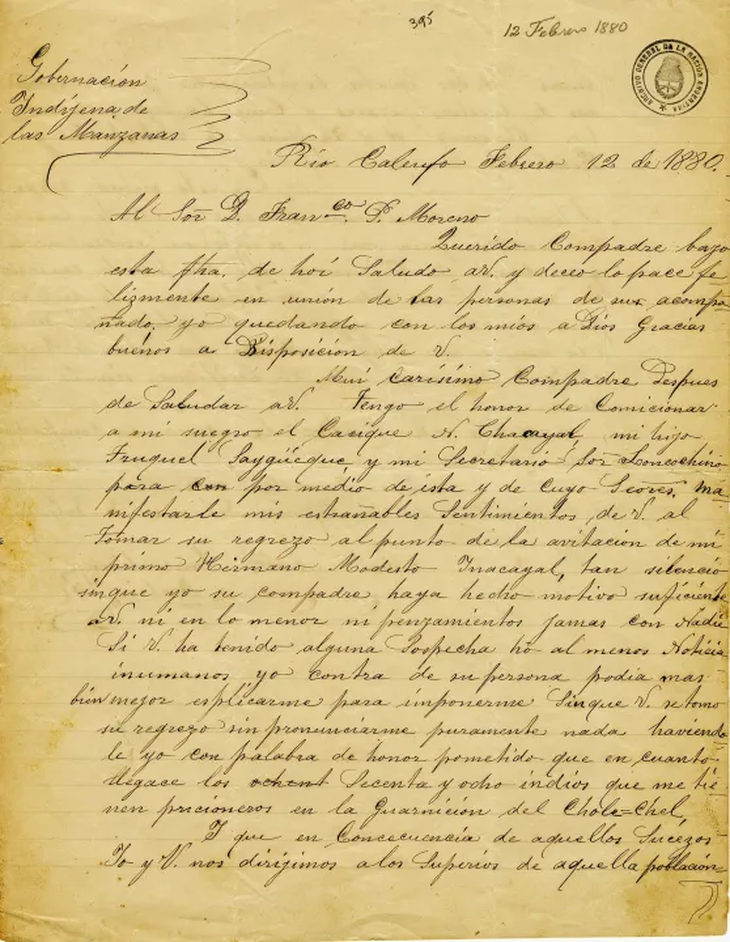 395
12 Febrero 1880
ARCHIVO GENERAL DE LA NACION ARGENTINA
Gobernación
Indíjena de
las Manzanas
Rio Caleufo Febrero 12 de 1880.
Al Sor D. Fran.co P. Moreno
Querido Compadre bajo
esta fha. de hoi Saludo aV. y deceo lo pace fe-
lizmente en unión de las personas de sus acompa-
ñado, yo quedando con los mios a Dios Gracias
buenos a Disposición de V.
Mui carísimo Compadre Despues
de Saludar aV. Tengo el honor de Comicionar
a mi suegro el Cacique N. Chacayal, mi hijo
Truquel Saygüeque y mi Secretario Sor Loncochino
para con por medio de ésta y de cuyo Seores. Ma-
nifestarle mis estrañables Sentimientos, de V. al
Tomar su regrezo al punto de la avitacion de mi
primo Hermano Modesto Inacayal, tan silencio
sinque yo su compadre haya hecho motivo suficiente
aV. ni en lo menor ni penzamientos jamas con Nadie
Si V. ha tenido alguna Sospecha hó al menos Noticia
inumanos yo contra de su persona podia mas
bien mejor esplicarme para imponerme Sinque V. se tomo
su regrezo sin pronunciarme puramente nada haviendo-
le yo con palabra de honor pometido que en cuanto
llegace los ochent Secenta y ocho indios que me tie-
nen pricioneros en la Guarnición del Chole=Chel,
I que en Concecuencia de aquellos Sucezos
Yo y V. nos dirijimos a los Superios de aquella población=